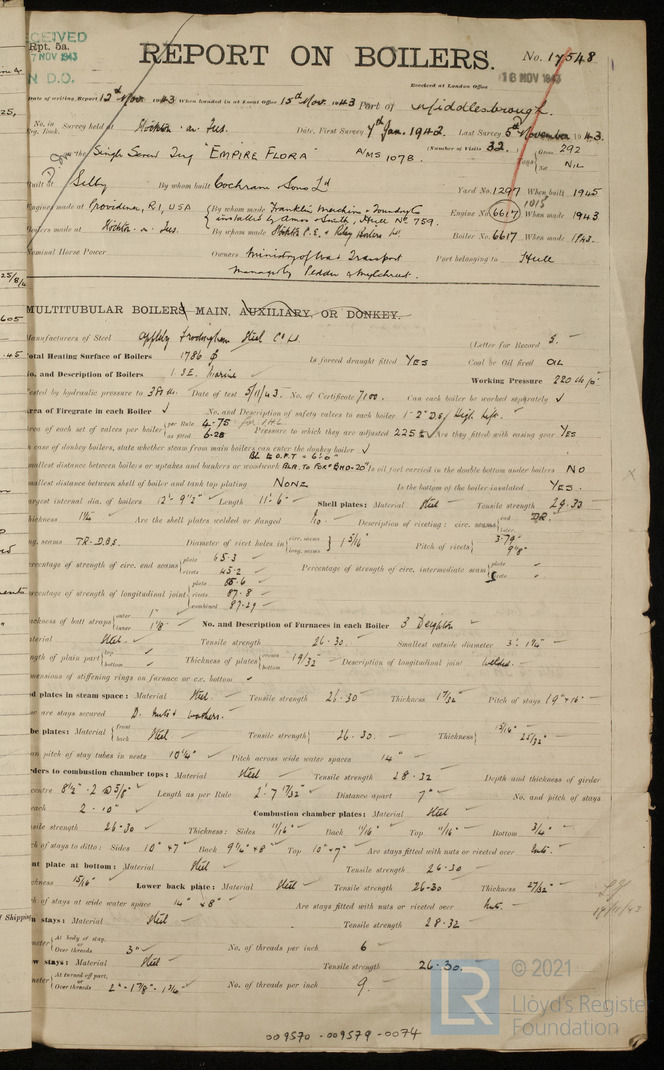 CEIVED
Rpt. 5a.
7 NOV 1943
N D.O.
REPORT ON BOILERS.
No. 17548
Received at London Office
16 NOV 1943
Date of writing Report 12th Nov. 1943 When handed in at Local Office 15th Nov. 1943 Port of Middlesbrough.
No. in Reg. Book. Survey held at Stockton-on-Tees. Date, First Survey 7th Jan. 1942 Last Survey 5th November 1943
on the Single Screw Tug "EMPIRE FLORA" A/MS 1078. (Number of Visits 32) Tons Gross 292 Net NIL
Built at Selby By whom built Cochrane & Sons Ld Yard No. 1297 When built 1945
Engines made at Providence, R.I., USA By whom made Franklin Machine & Foundry Co installed by Amos & Smith, Hull No 759. Engine No. 6617 1015 When made 1943
Boilers made at Stockton-on-Tees. By whom made Stockton C.E. & Riley Boilers Ld. Boiler No. 6617 When made 1943.
Nominal Horse Power Owners Ministry of War Transport Port belonging to Hull
MULTITUBULAR BOILERS MAIN, AUXILIARY, OR DONKEY.
Manufacturers of Steel Appleby Frodingham Steel Co Ld. (Letter for Record S.
Total Heating Surface of Boilers 1786 Is forced draught fitted YES Coal or Oil fired OIL
No. and Description of Boilers 1 S.E. Marine Working Pressure 220
Tested by hydraulic pressure to 380 Date of test 5/11/43. No. of Certificate 7100. Can each boiler be worked separately ✓
Area of Firegrate in each Boiler ✓ No. and Description of safety valves to each boiler 1-2" D.S. High lift.
Area of each set of valves per boiler per Rule 4.75 as fitted 6.28 Pressure to which they are adjusted 225 Are they fitted with easing gear YES
In case of donkey boilers, state whether steam from main boilers can enter the donkey boiler ✓
Smallest distance between boilers or uptakes and bunkers or woodwork Is oil fuel carried in the double bottom under boilers NO
Smallest distance between shell of boiler and tank top plating NONE Is the bottom of the boiler insulated YES
Largest internal dia. of boilers 12'-9½" Length 11'-6" Shell plates: Material Steel Tensile strength 29-33
Thickness Are the shell plates welded or flanged No Description of riveting: circ. seams end D.R. inter.
long. seams TR. D.B.S. Diameter of rivet holes in circ. seams long. seams 1 5/16" Pitch of rivets 3.79" 9 1/8"
Percentage of strength of circ. end seams plate 65.3 rivets 45.2 Percentage of strength of circ. intermediate seam plate rivets
Percentage of strength of longitudinal joint plate 85.6 rivets 87.8 combined 87.29
Thickness of butt straps outer 1" inner 1 1/8" No. and Description of Furnaces in each Boiler 3 Deighton
Material Steel Tensile strength 26-30. Smallest outside diameter
Length of plain part top bottom Thickness of plates crown bottom 19/32" Description of longitudinal joint welded.
Dimensions of stiffening rings on furnace or c.c. bottom
End plates in steam space: Material Steel Tensile strength 26-30 Thickness Pitch of stays 19" x 16"
How are stays secured D. Nuts & washers.
Tube plates: Material front back Steel Tensile strength 26-30. Thickness 15/16" 25/32"
Mean pitch of stay tubes in nests 10¼" Pitch across wide water spaces 14"
Girders to combustion chamber tops: Material Steel Tensile strength 28-32 Depth and thickness of girder
at centre 8½"-2 @ 5/8" Length as per Rule 2'-7 17/32" Distance apart 7" No. and pitch of stays
in each 2-10" Combustion chamber plates: Material Steel
Tensile strength 26-30 Thickness: Sides 11/16" Back 11/16" Top 11/16" Bottom 3/4"
Pitch of stays to ditto: Sides 10" x 7" Back 9¼" x 8" Top 10" x 7" Are stays fitted with nuts or riveted over Nuts.
Front plate at bottom: Material Steel Tensile strength 26-30
Thickness 15/16" Lower back plate: Material Steel Tensile strength 26-30 Thickness 27/32"
Pitch of stays at wide water space 14" x 8" Are stays fitted with nuts or riveted over Nuts.
Main stays: Material Steel Tensile strength 28-32
Diameter At body of stay, or Over threads 3" No. of threads per inch 6
Screw stays: Material Steel Tensile strength 26-30.
Diameter At turned off part, or Over threads No. of threads per inch 9.
009570-009579-0074
LR © 2021 Lloyd's Register Foundation